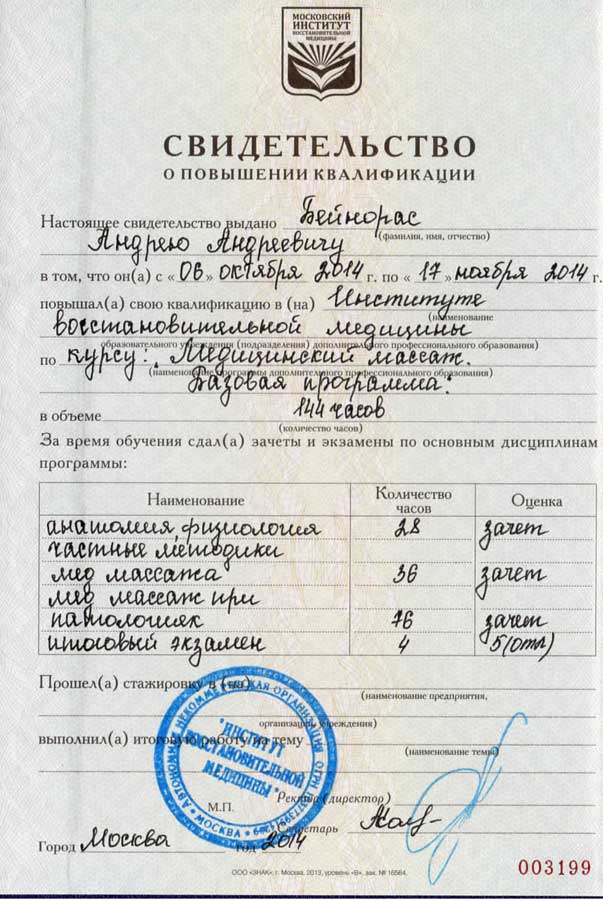 МОСКОВСКИЙ
ИНСТИТУТ
ВОССТАНОВИТЕЛЬНОЙ
МЕДИЦИНЫ
СВИДЕТЕЛЬСТВО
О ПОВЫШЕНИИ КВАЛИФИКАЦИИ
Настоящее свидетельство выдано Бейнорас
(фамилия, имя, отчество)
Андрею Андреевичу
в том, что он(а) с «06» октября 2014 г. по «17» ноября 2014 г.
повышал(а) свою квалификацию в (на) Институте
(наименование
восстановительной медицины
образовательного учреждения (подразделения) дополнительного профессионального образования)
по курсу: Медицинский массаж.
(наименование программы дополнительного профессионального образования)
Базовая программа:
в объеме 144 часов
(количество часов)
За время обучения сдал(а) зачеты и экзамены по основным дисциплинам
программы:
Наименование Количество часов Оценка
анатомия, физиология 28 зачет
частные методики
мед массажа 36 зачет
мед массаж при
патологиях 76 зачет
итоговый экзамен 4 5(отл)
Прошел(а) стажировку в (на)
(наименование предприятия,
организации, учреждения)
выполнил(а) итоговую работу на тему
(наименование темы)
АВТОНОМНАЯ НЕКОММЕРЧЕСКАЯ ОРГАНИЗАЦИЯ ОГРН
* МОСКВА *
"ИНСТИТУТ
ВОССТАНОВИТЕЛЬНОЙ
МЕДИЦИНЫ"
Ректор (директор)
М.П.
Секретарь
Город Москва год 2014
003199
ООО «ЗНАК», г. Москва, 2013, уровень «В», зак. № 16564.